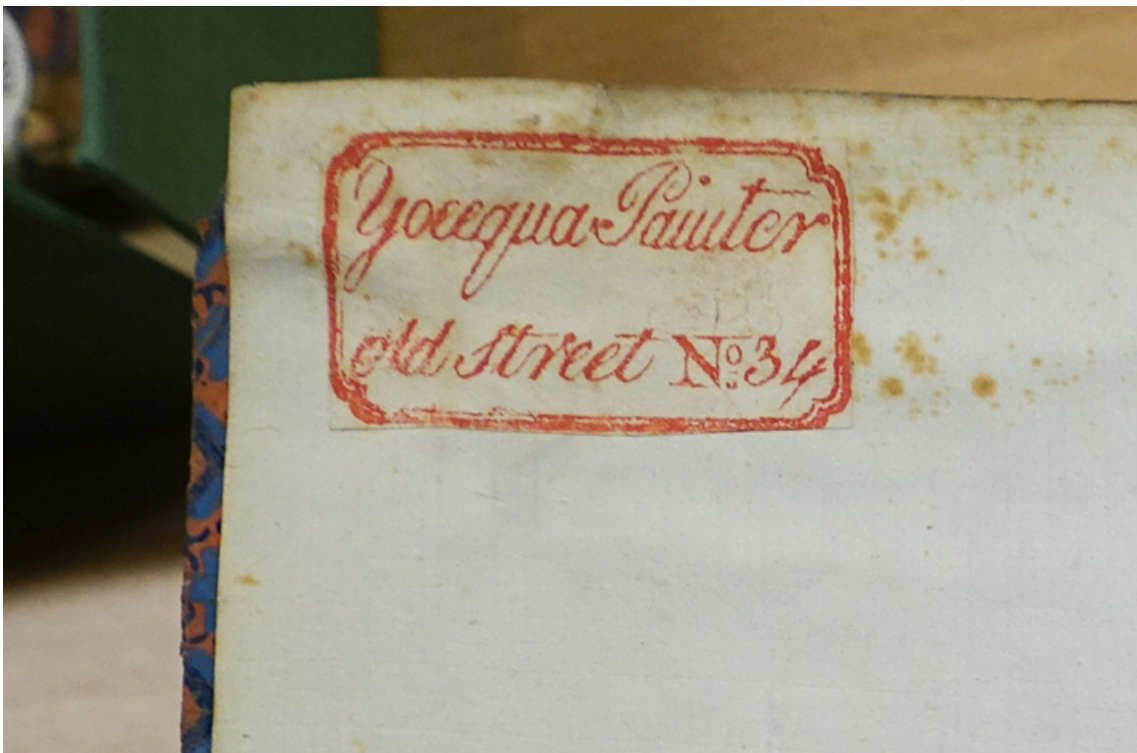 Yoeequa Painter
old street No. 34